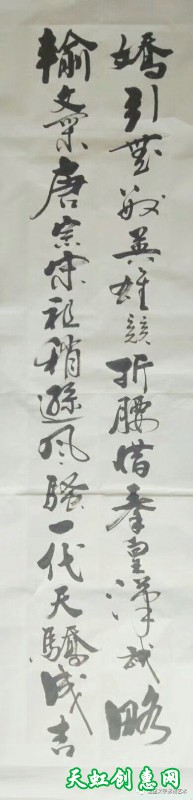 嬌引無數英雄競折腰惜秦皇漢武略
輸文采唐宗宋祖稍遜風騷一代天驕成吉
天虹创惠网